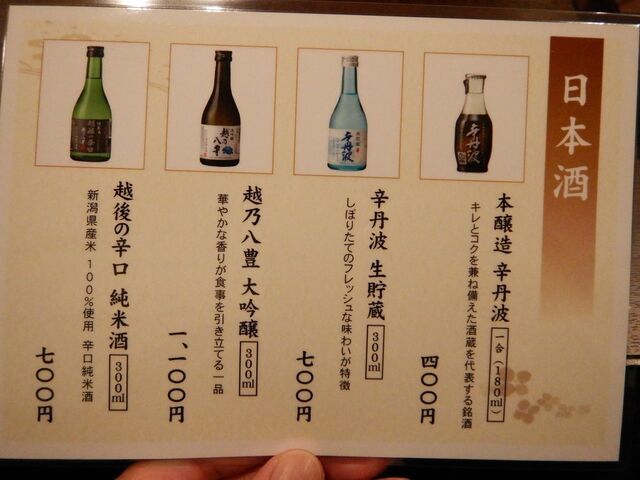 日本酒
本醸造 辛丹波 一合(180ml)
キレとコクを兼ね備えた酒蔵を代表する銘酒
四〇〇円
辛丹波 生貯蔵 300ml
しぼりたてのフレッシュな味わいが特徴
七〇〇円
越乃八豊 大吟醸 300ml
華やかな香りが食事を引き立てる一品
一、一〇〇円
越後の辛口 純米酒 300ml
新潟県産米 100%使用 辛口純米酒
七〇〇円
辛丹波
辛丹波